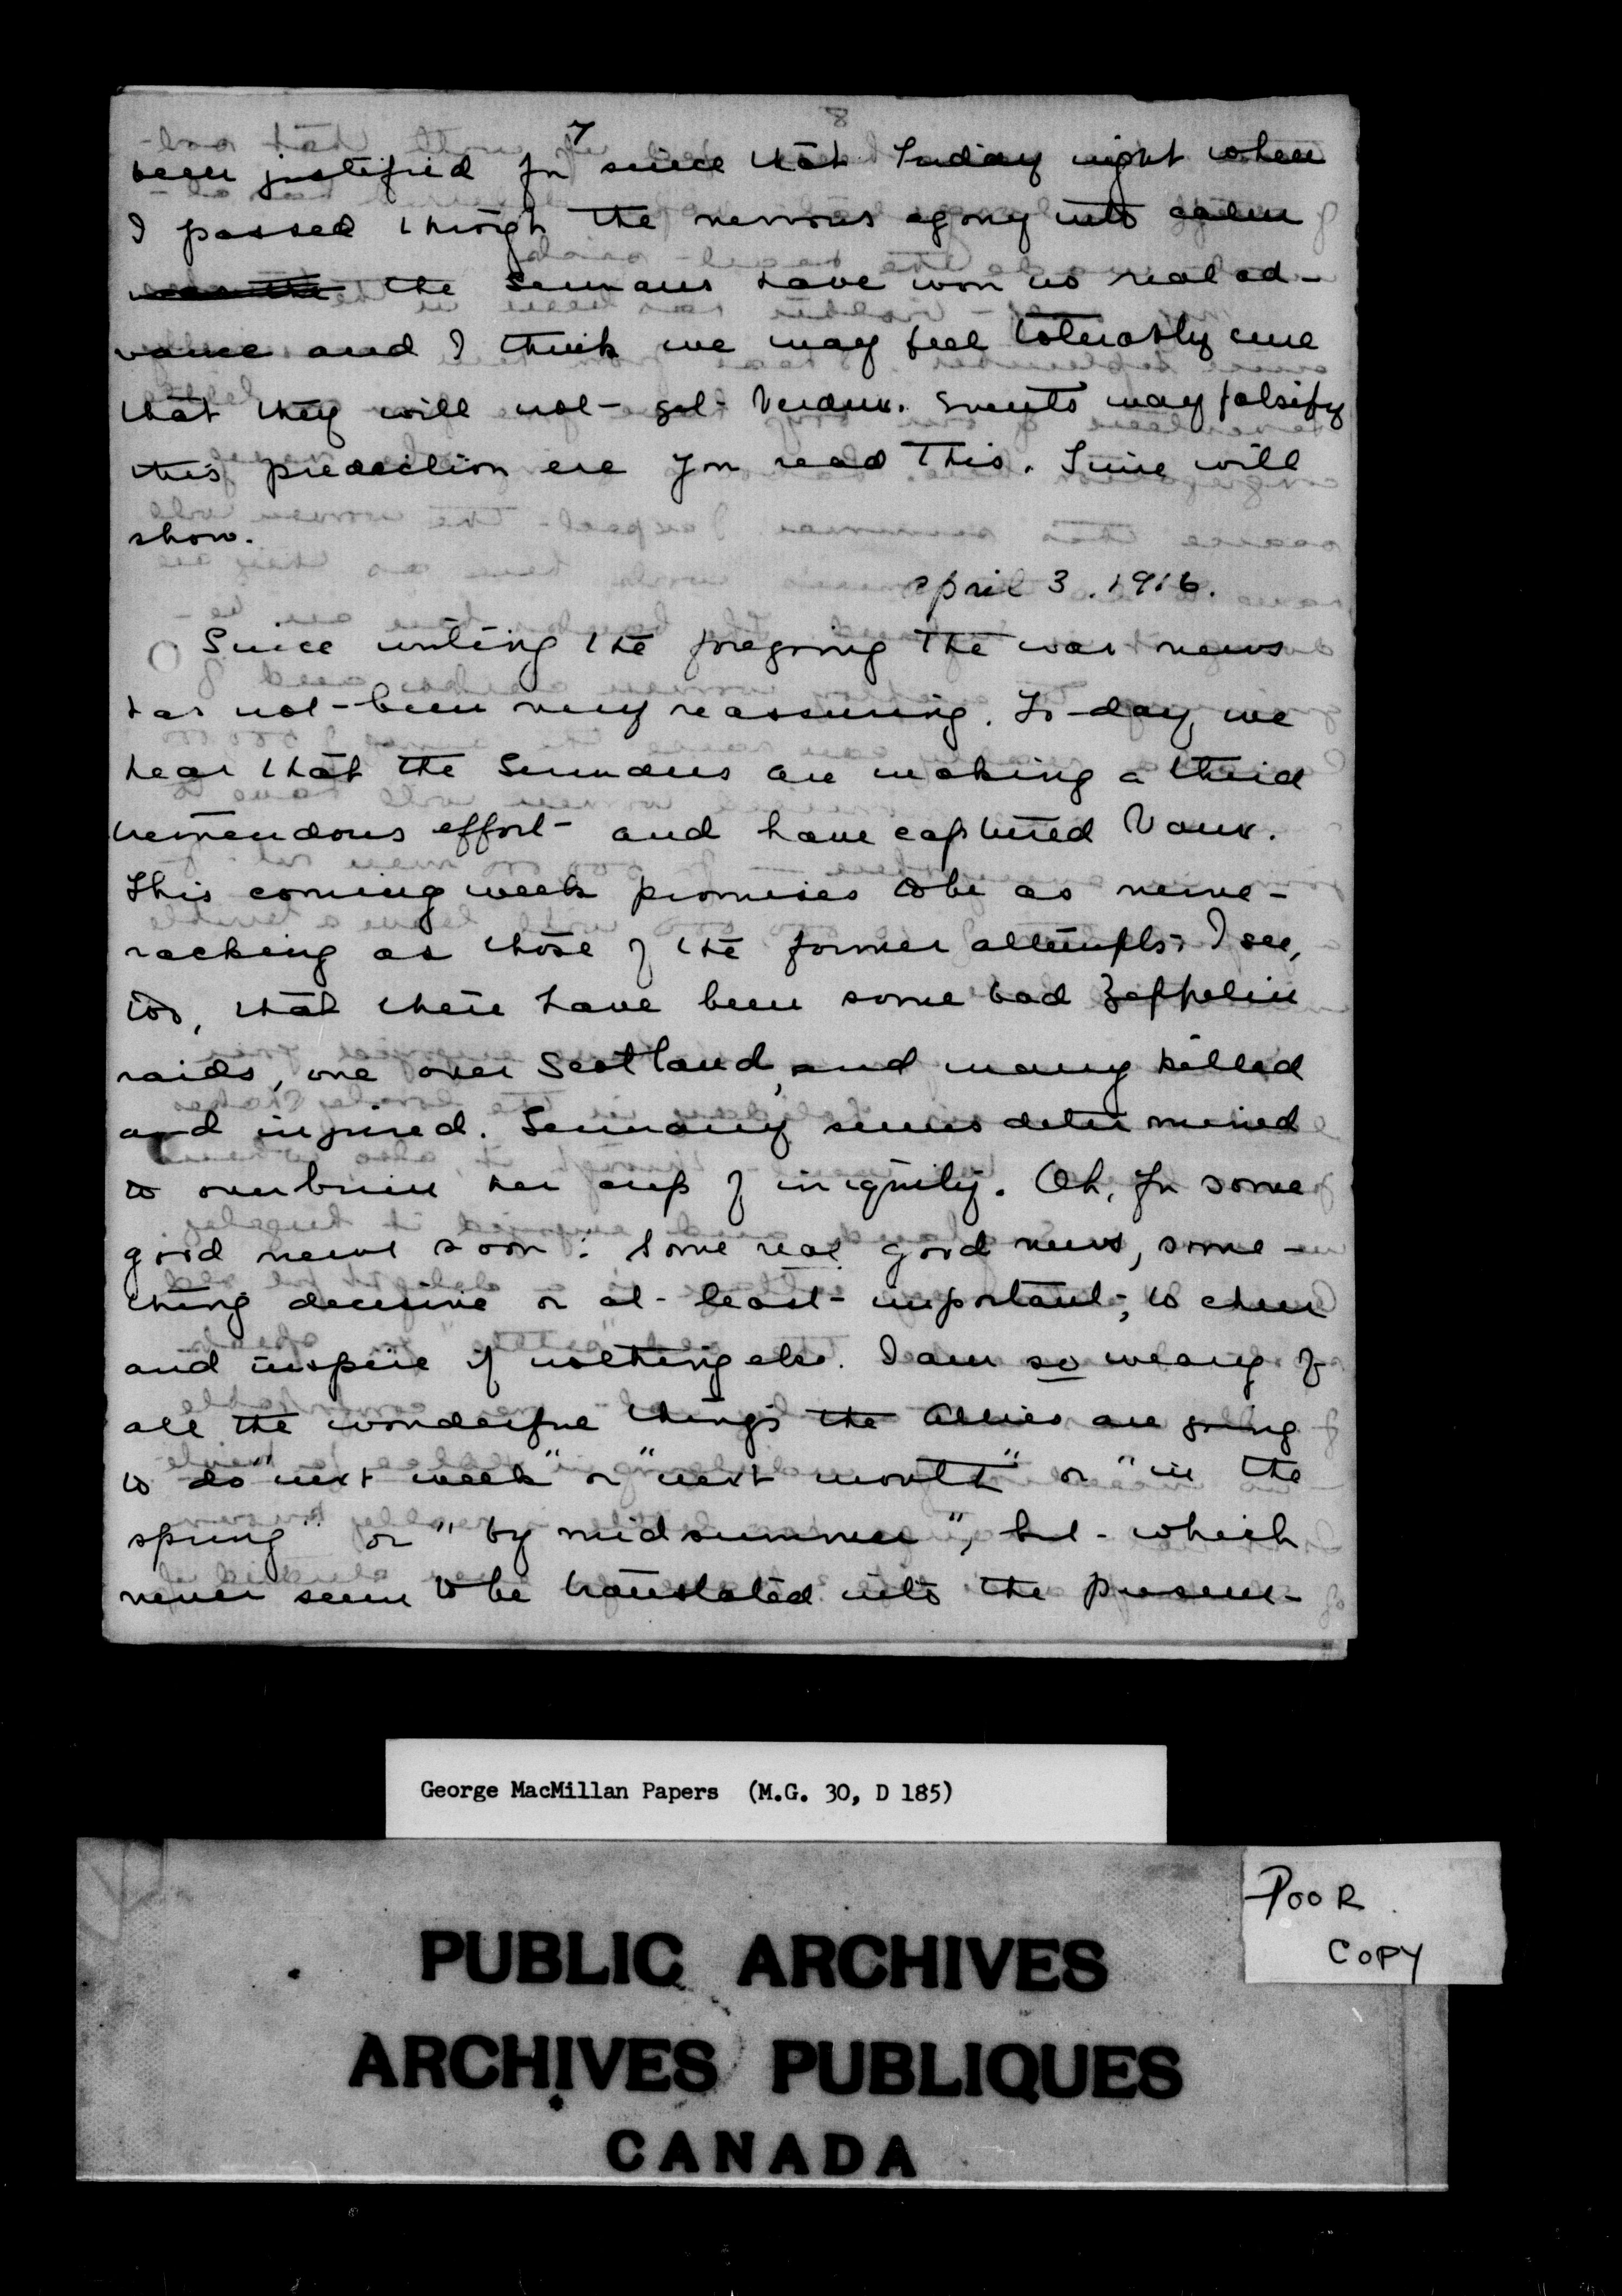 7
been justified for since that Sunday night when
I passed through the nervous agony into calm
was the the Germans have won no real ad-
vance and I think we may feel tolerably sure
that they will not get Verdun. Events may falsify
this prediction ere you read this. Time will
show.
April 3. 1916.
Since writing the foregoing the war news
has not been very reassuring. To-day we
hear that the Germans are making a third
tremendous effort and have captured Vaux.
This coming week promises to be as nerve-
racking as those of the former attempts. I see,
too, that there have been some bad Zeppelin
raids, one over Scotland, and many killed
and injured. Germany seems determined
to overbrim her cup of iniquity. Oh, for some
good news soon: Some real good news, some-
thing decisive or at least important, to cheer
and inspire if nothing else. I am so weary of
all the wonderful things the Allies are going
to do "next week" or "next month" or "in the
spring" or "by midsummer", but which
never seem to be translated into the present-
George MacMillan Papers (M.G. 30, D 185)
POOR
COPY
PUBLIC ARCHIVES
ARCHIVES PUBLIQUES
CANADA